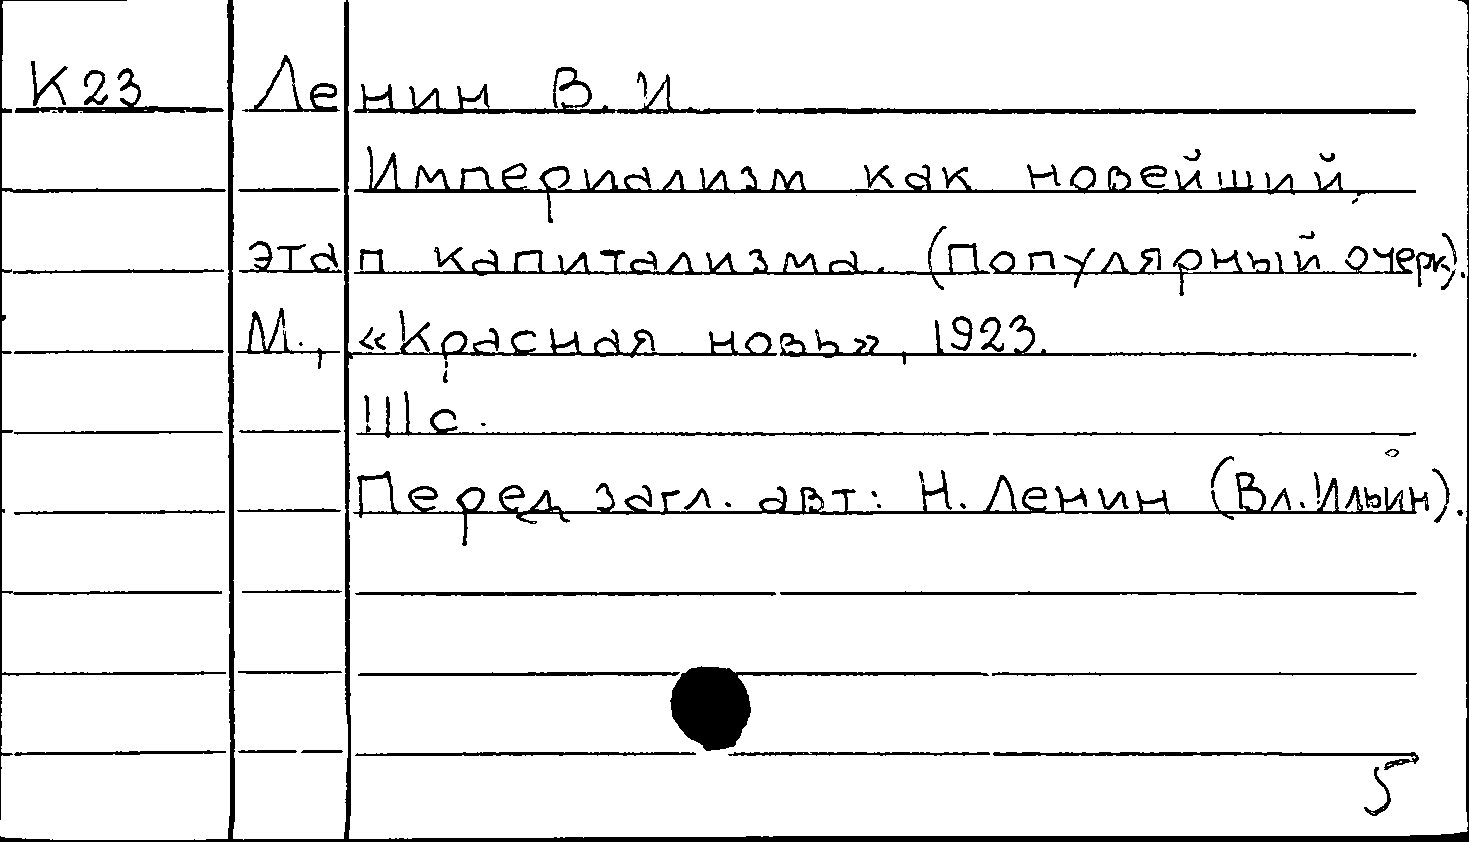 К23 Ленин В. И.
Империализм как новейший
этап капитализма. (Популярный очерк).
М., «Красная новь», 1923.
111 с.
Перед загл. авт: Н. Ленин (Вл. Ильин).
5